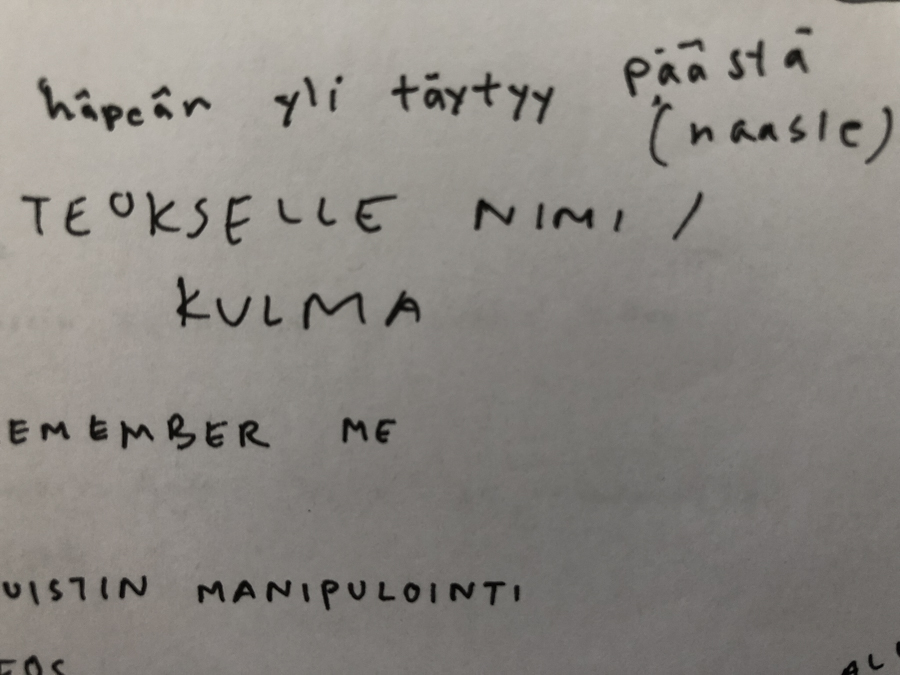 häpeän yli täytyy päästä
(naasle)
TEOKSELLE NIMI /
KULMA
EMEMBER ME
UISTIN MANIPULOINTI
EOS